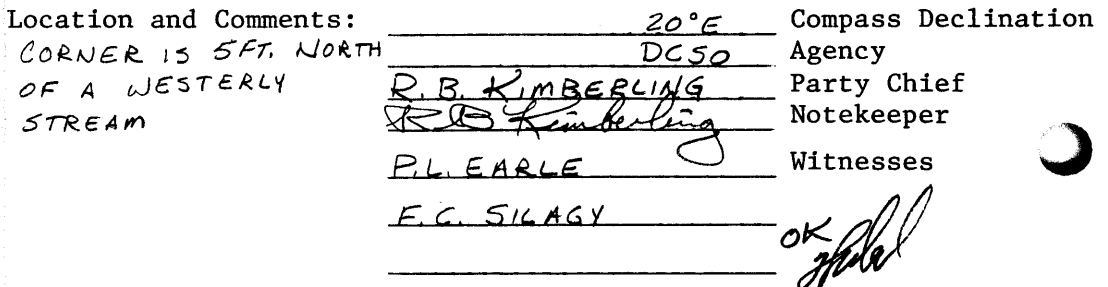 Location and Comments:
CORNER IS 5FT. NORTH
OF A WESTERLY
STREAM
20°E Compass Declination
DCSO Agency
R. B. KIMBERLING Party Chief
RB Kimberling Notekeeper
P.L. EARLE Witnesses
E.C. SILAGY
OK